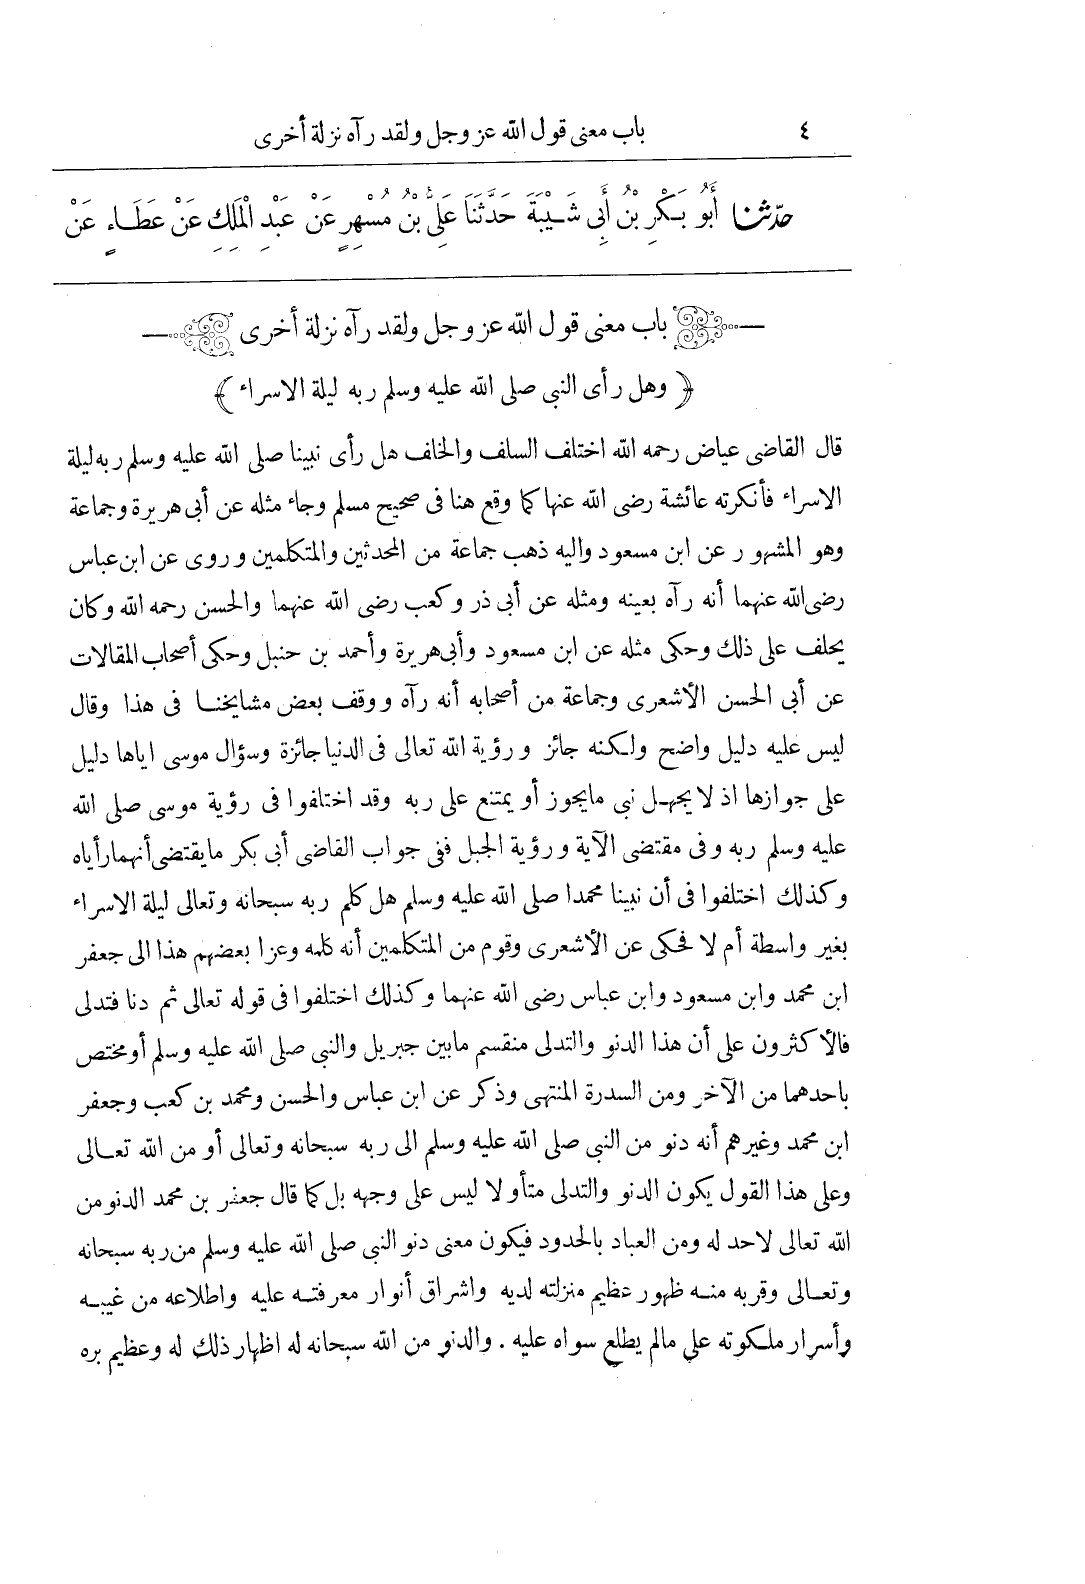 ٤ باب معنى قول الله عز وجل ولقد رآه نزلة أخرى
حدّثنا أَبُو بَكْرِ بْنُ أَبِى شَيْبَةَ حَدَّثَنَا عَلِىُّ بْنُ مُسْهِرٍ عَنْ عَبْدِ الْمَلِكِ عَنْ عَطَاءٍ عَنْ
باب معنى قول الله عز وجل ولقد رآه نزلة أخرى
﴿ وهل رأى النبى صلى الله عليه وسلم ربه ليلة الاسراء ﴾
قال القاضى عياض رحمه الله اختلف السلف والخلف هل رأى نبينا صلى الله عليه وسلم ربه ليلة
الاسراء فأنكرته عائشة رضى الله عنها كما وقع هنا فى صحيح مسلم وجاء مثله عن أبى هريرة وجماعة
وهو المشهور عن ابن مسعود واليه ذهب جماعة من المحدثين والمتكلمين وروى عن ابن عباس
رضى الله عنهما أنه رآه بعينه ومثله عن أبى ذر وكعب رضى الله عنهما والحسن رحمه الله وكان
يحلف على ذلك وحكى مثله عن ابن مسعود وأبى هريرة وأحمد بن حنبل وحكى أصحاب المقالات
عن أبى الحسن الأشعرى وجماعة من أصحابه أنه رآه ووقف بعض مشايخنا فى هذا وقال
ليس عليه دليل واضح ولكنه جائز ورؤية الله تعالى فى الدنيا جائزة وسؤال موسى اياها دليل
على جوازها اذ لا يجهل نبى مايجوز أو يمتنع على ربه وقد اختلفوا فى رؤية موسى صلى الله
عليه وسلم ربه وفى مقتضى الآية ورؤية الجبل ففى جواب القاضى أبى بكر مايقتضى أنهما رأياه
وكذلك اختلفوا فى أن نبينا محمدا صلى الله عليه وسلم هل كلم ربه سبحانه وتعالى ليلة الاسراء
بغير واسطة أم لا فحكى عن الأشعرى وقوم من المتكلمين أنه كلمه وعزا بعضهم هذا الى جعفر
ابن محمد وابن مسعود وابن عباس رضى الله عنهما وكذلك اختلفوا فى قوله تعالى ثم دنا فتدلى
فالأكثرون على أن هذا الدنو والتدلى منقسم مابين جبريل والنبى صلى الله عليه وسلم أو مختص
باحدهما من الآخر ومن السدرة المنتهى وذكر عن ابن عباس والحسن ومحمد بن كعب وجعفر
ابن محمد وغيرهم أنه دنو من النبى صلى الله عليه وسلم الى ربه سبحانه وتعالى أو من الله تعالى
وعلى هذا القول يكون الدنو والتدلى متأولا ليس على وجهه بل كما قال جعفر بن محمد الدنو من
الله تعالى لاحد له ومن العباد بالحدود فيكون معنى دنو النبى صلى الله عليه وسلم من ربه سبحانه
وتعالى وقربه منه ظهور عظيم منزلته لديه واشراق أنوار معرفته عليه واطلاعه من غيبه
وأسرار ملكوته على مالم يطلع سواه عليه . والدنو من الله سبحانه له اظهار ذلك له وعظيم بره